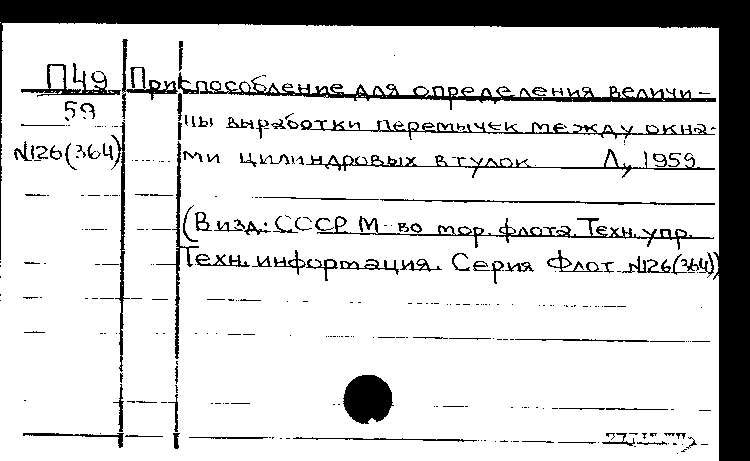 П49
59
N126(364)
Приспособление для определения величи-
ны выработки перемычек между окна-
ми цилиндровых втулок. Л, 1959.
(В изд.: СССР М-во мор. флота. Техн. упр.
Техн. информация. Серия Флот N126(364))